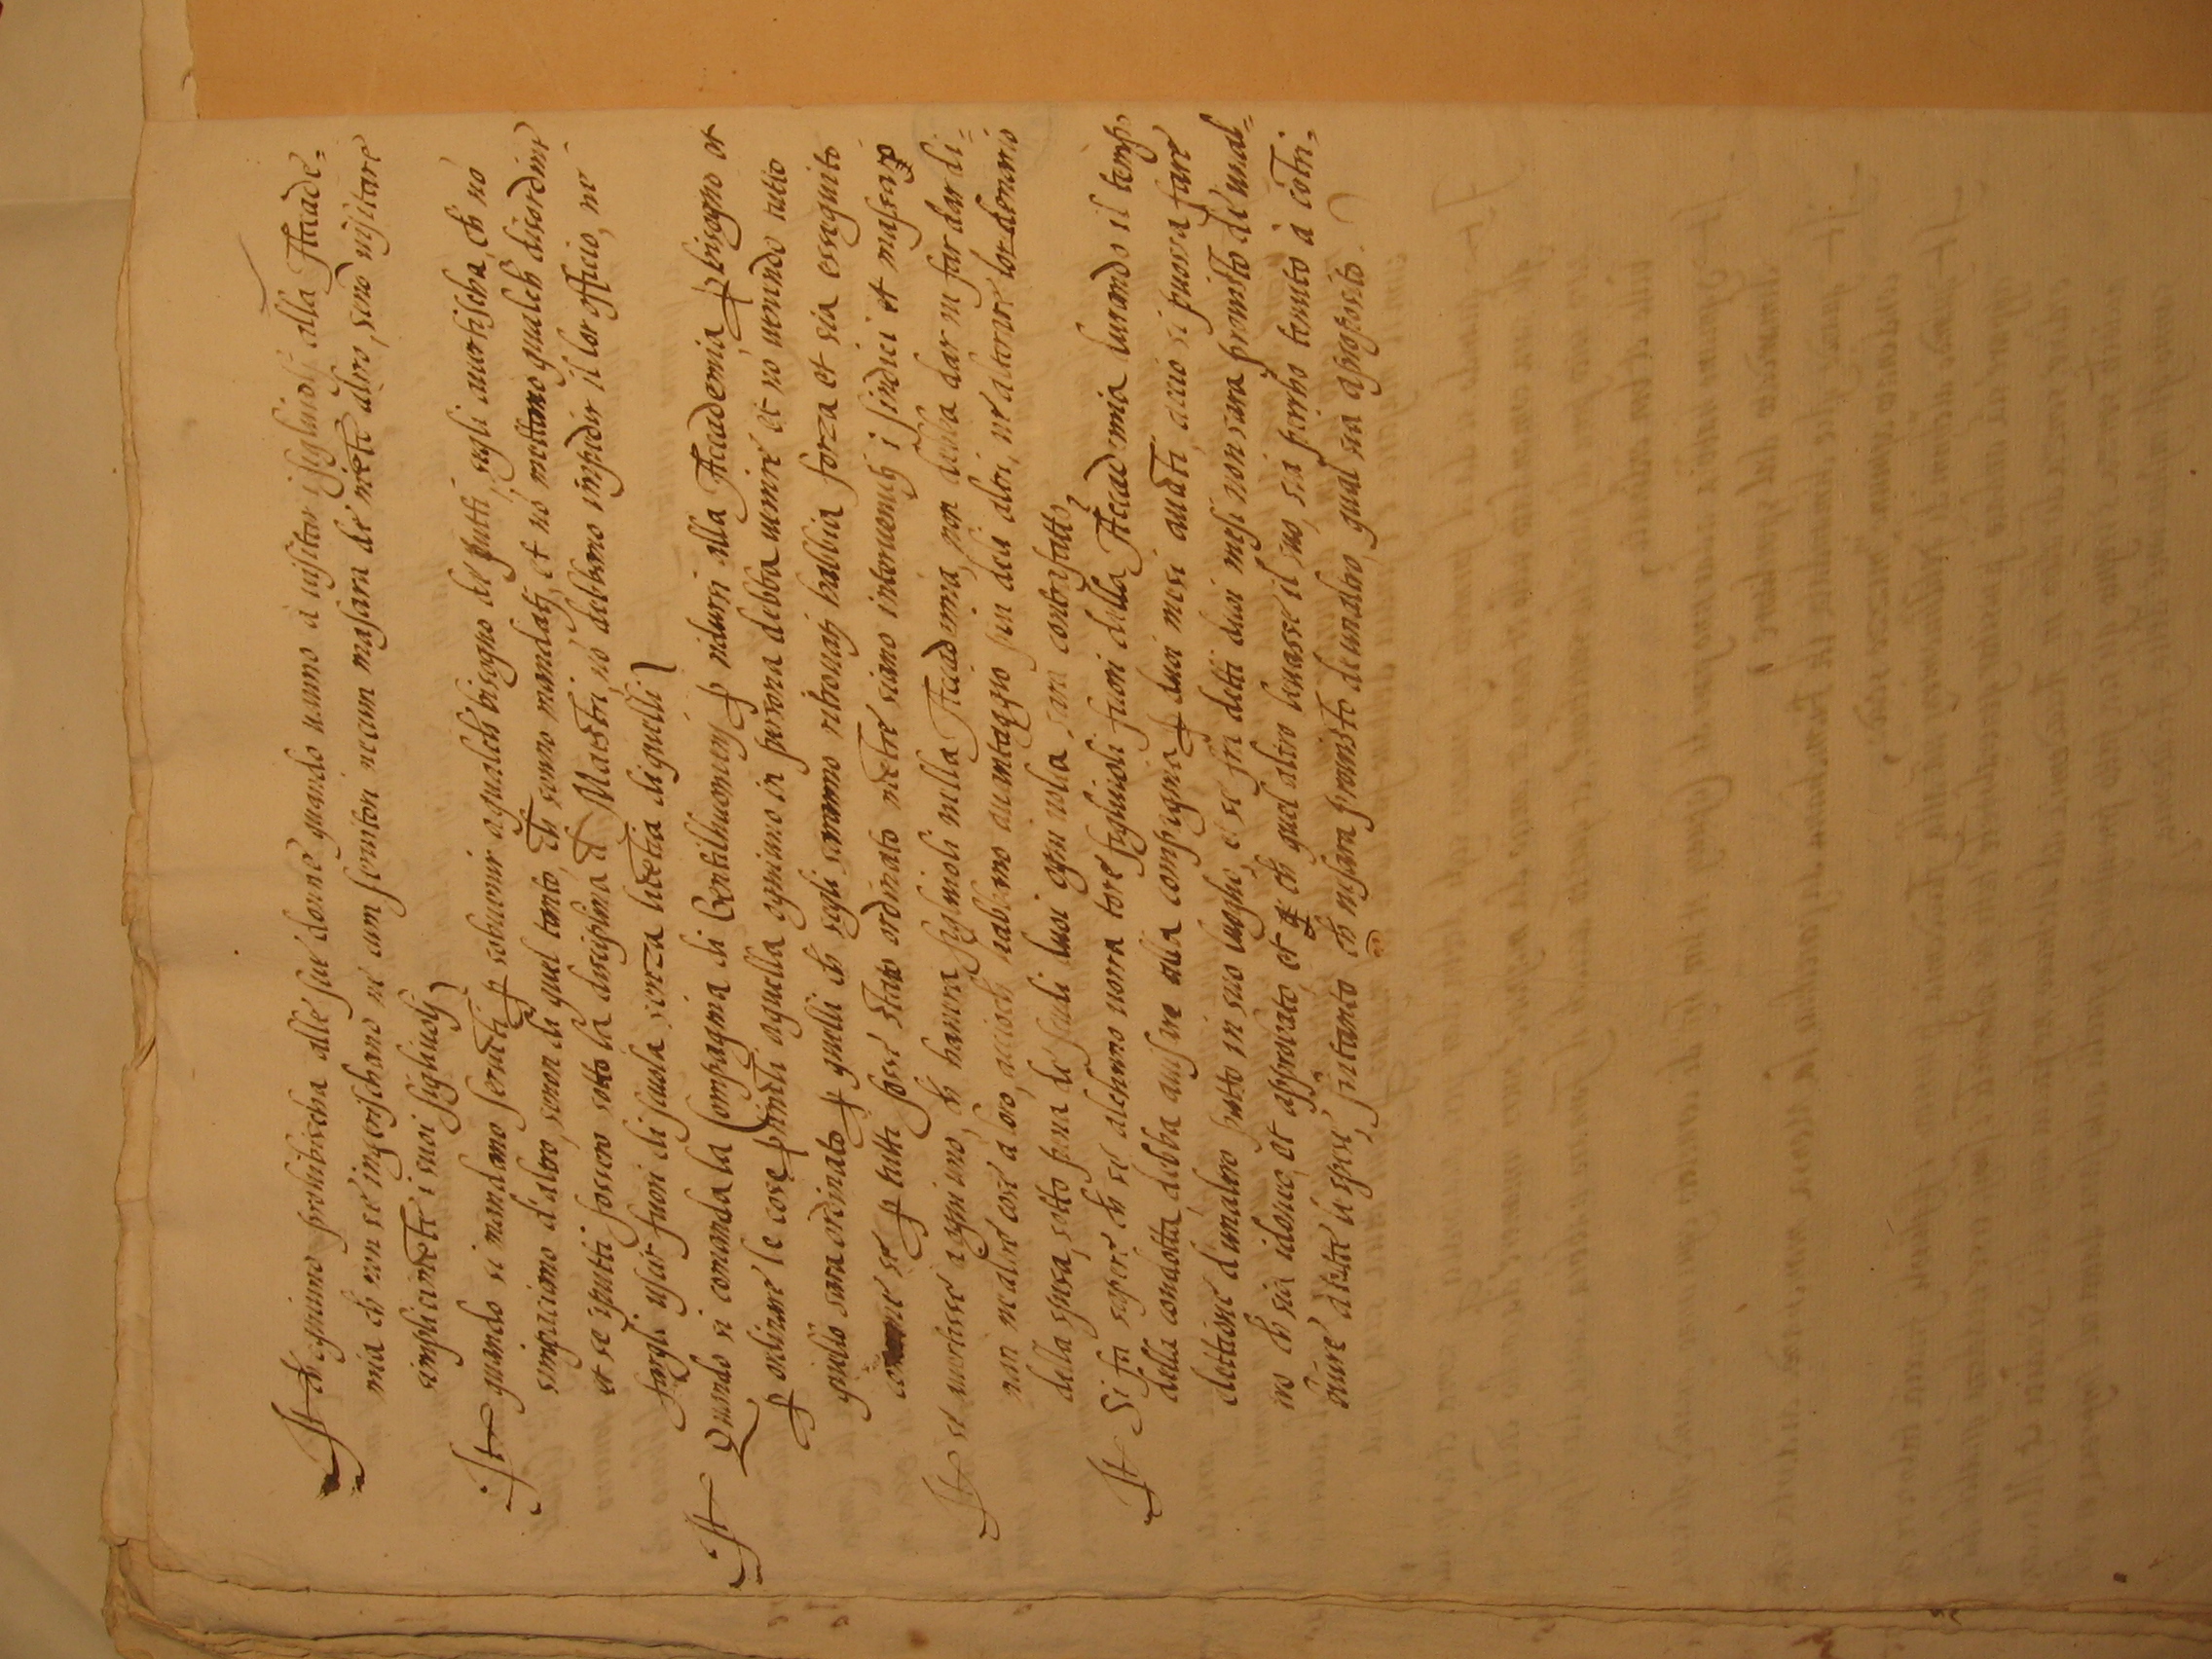 It ch ogniuno prohibischa alle sue donne quando uanno a uisitar i figliuoli alla Accade=
mia ch non se ingerischano ne cum seruitori necum masara de niente altro, senò uisitare
simplicimente i suoi figliuoli
It quando si mandano seruenti p souuenir a qualch bisogno de putti, segli auertischa, ch nò
singerischano d'altro, senon di quel tanto, ch seranno mandati, et nò mettano qualch disordine
et se i putti fossero sotto la disciplina d Maestri, nò debbano inpedir il lor officio, ne
fargli usir fuori di scuola senza licentia di quelli
It Quando si comanda la Compagnia di Gentilhuomeni p ridursi alla Accademia, p bisogno et
p ordinare le cose ptinenti a quella ogniuno in persona debba uenire et nò uenendo tutto
quello sara ordinato p quelli ch segli saranno ritrouati habbia forza et sia esseguito
come se p tutti fosse stato ordinato mentre siano interuenuti i sindici et massaro
It se auertisse a ogniuno, ch hauera figliuoli nella Accademia, non debba dar ne far dar di=
nari ne altre cose a loro, accioch habbiano auantaggio piu deli altri, ne alterar lor denaro
della spesa, sotto pena de scudi duoi ogni uolta, sara contrafatto
It Si fa sapere ch se alchuno uorra tore figliuoli fuori della Accademia durando il tempo
della condotta, debba auisare alla compagnia p duoi mesi auanti, accio si puossa fare
elettione d'unaltro putto in suo luogho, et se fra detti duoi mesi non sara prouisto di unal=
tro ch sia idoneo, et approuato, et ch quel altro leuasse il suo, sia perho tenuto à cotri=
buire à dette le spese, fintanto ch nesara prouisto de unaltro, qual sia aproposito.